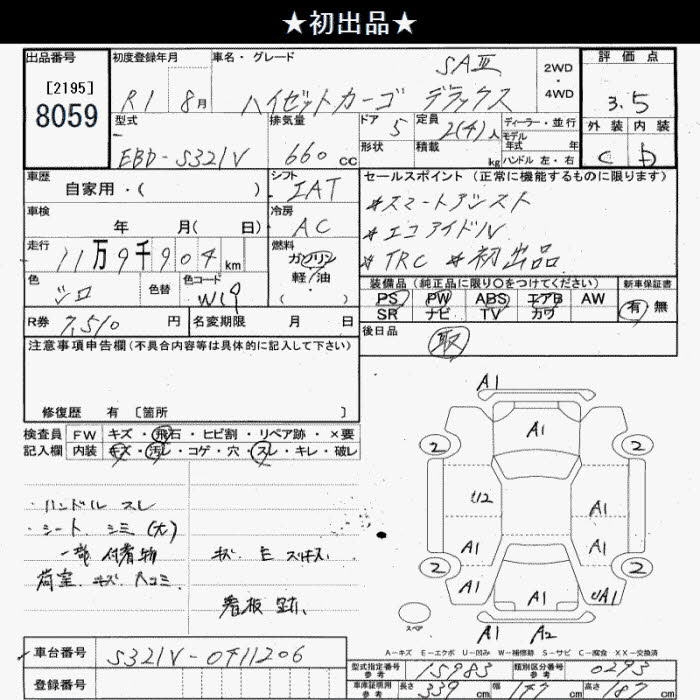 ★初出品★
出品番号 初度登録年月 車名・グレード 評価点
[2195] SAⅢ 2WD・4WD
8059 R1 8月 ハイゼットカーゴ デラックス 3.5
型式 排気量 ドア 5 定員 2(4)人 ディーラー・並行 外装 内装
EBD-S321V 660cc 形状 積載 kg モデル年式 年 ハンドル 左・右 C D
車歴 自家用・( ) シフト IAT セールスポイント (正常に機能するものに限ります)
車検 年 月( 日) 冷房 AC *スマートアシスト
走行 11万9千904km 燃料 ガソリン 軽油・( ) *エコアイドル
*TRC *初出品
色 シロ 色替 色コード W19 装備品 (純正品に限り○をつけてください) 新車保証書
PS PW ABS エアB AW 有 無
R券 7,510円 名変期限 月 日 SR ナビ TV カワ
注意事項申告欄 (不具合内容等は具体的に記入して下さい) 後日品
取
修復歴 有 〔箇所 〕
検査員 FW キズ・飛石・ヒビ割・リペア跡・×要
記入欄 内装 キズ・汚レ・コゲ・穴・スレ・キレ・破レ
・ハンドル スレ
・シート シミ(大)
一部 付着物
荷室 キズ ヘコミ
看板 跡、
A1
A1
2 2
U2 A1
A1 A1
2 2
A1 A1 UA1
A1 A2
スペア
A-キズ E-エクボ U-凹み W-補修跡 S-サビ C-腐食 XX-交換済
車台番号 S321V-0411206
型式指定番号 参考 15983 類別区分番号 参考 0293
登録番号
車庫証明用 参考 長さ 339cm 幅 147cm 高さ 187cm